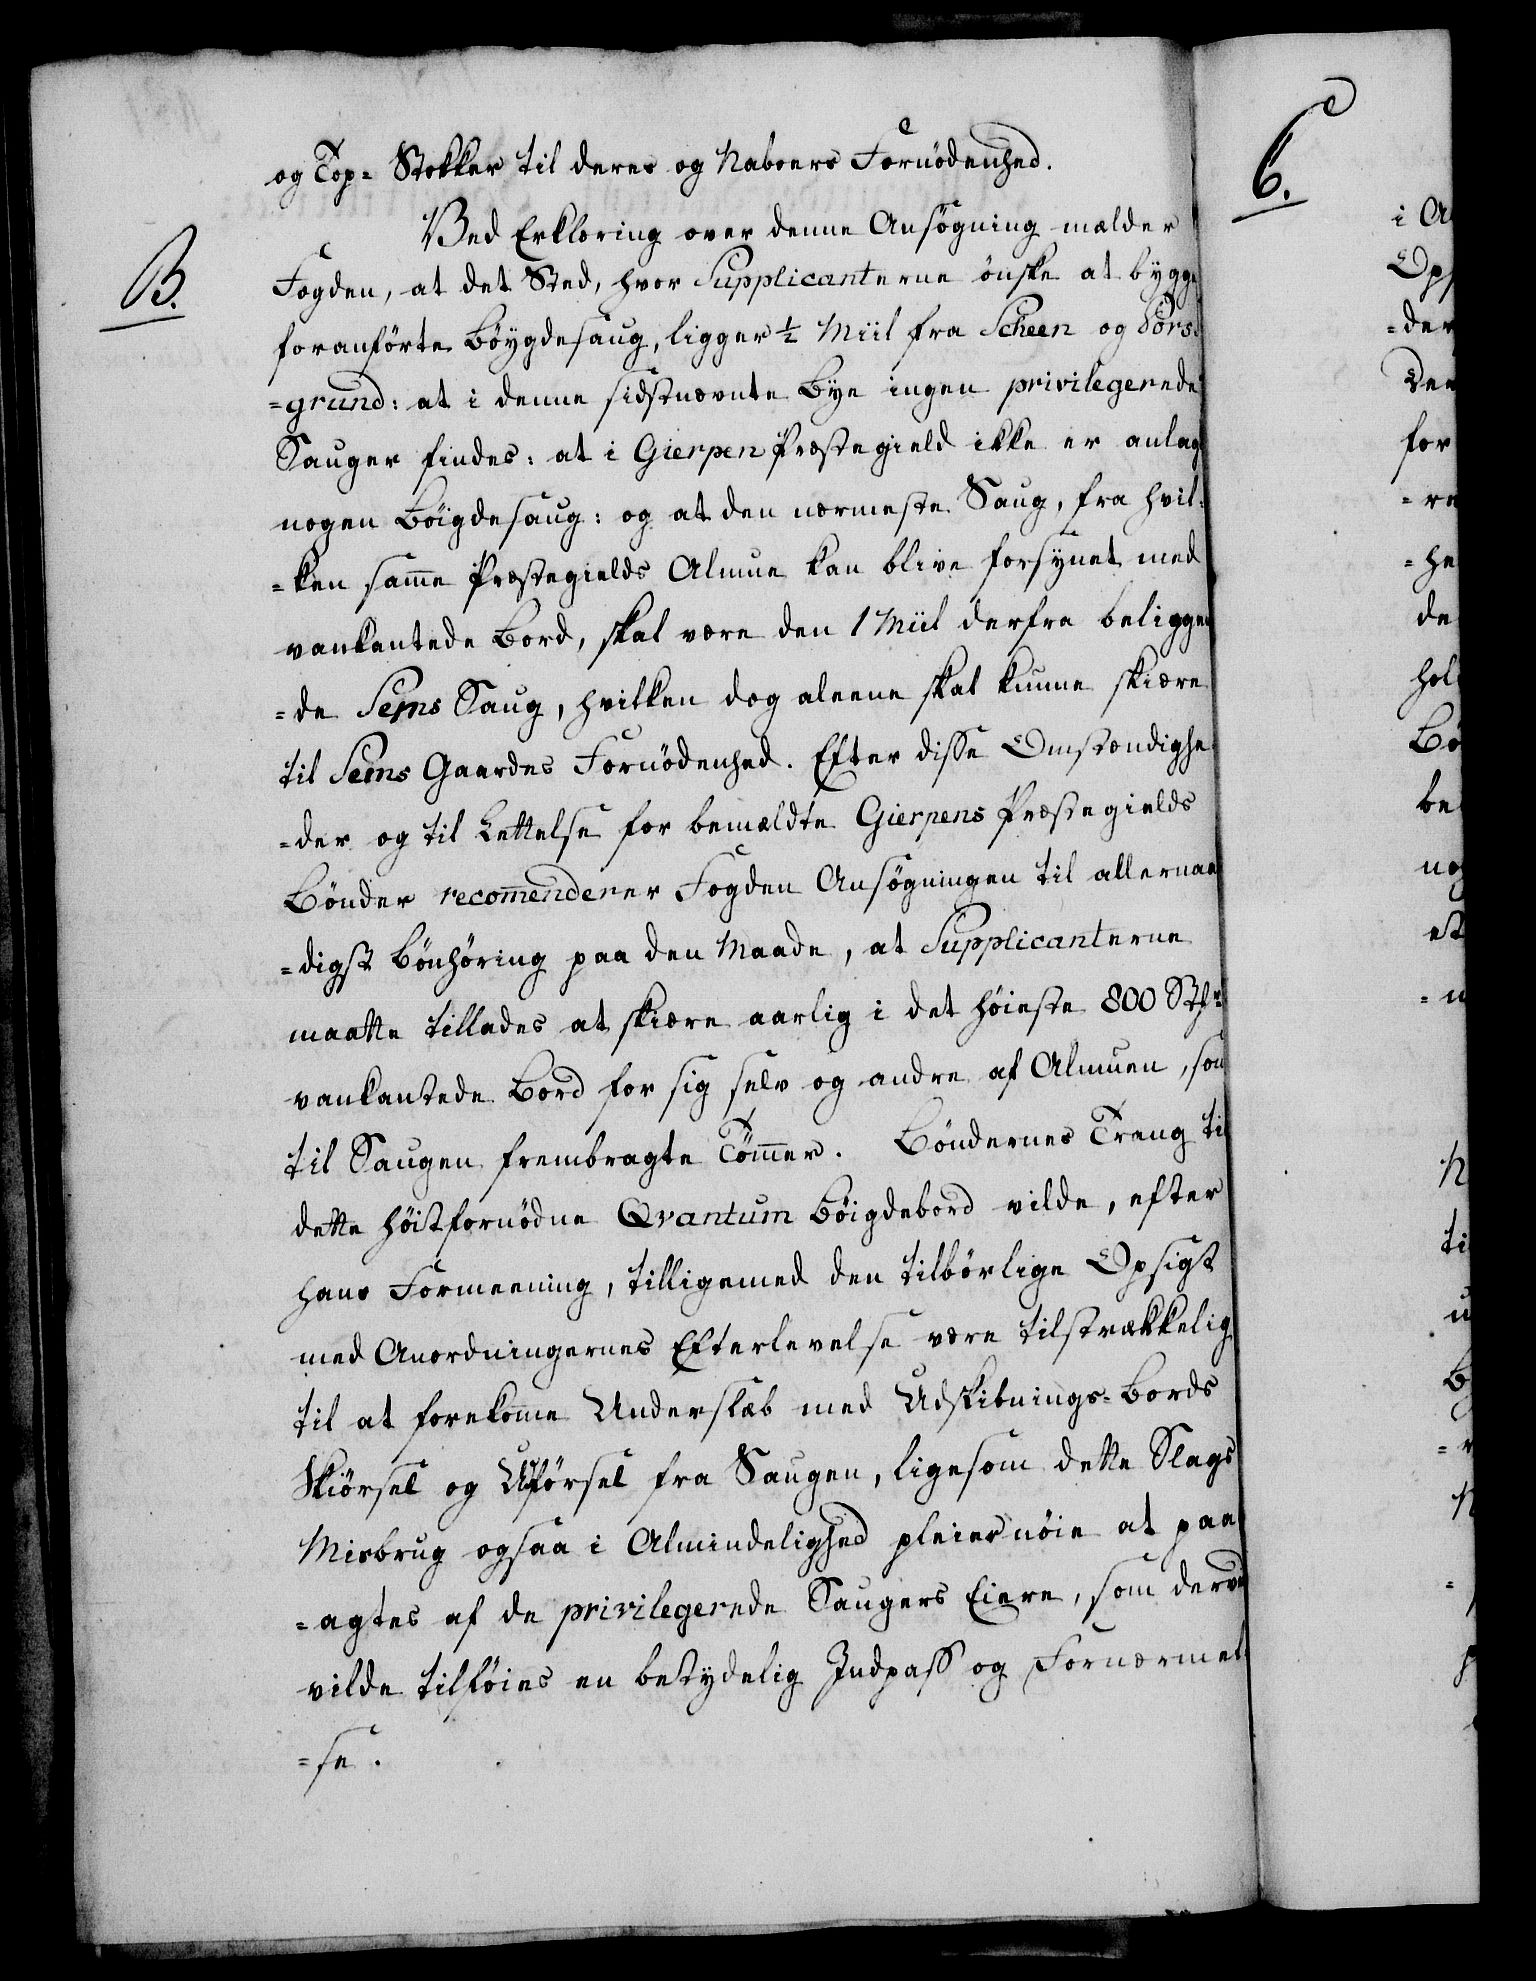 og Top- Stokker til deres og Naboers Fornödenhed.
B.
Ved Erklæring over denne Ansögning mælder
Fogden, at det Sted, hvor Supplicanterne önske at bygge
foranförte Böygdesaug, ligger ½ Miil fra Scheen og Pors-
=grund: at i denne sidstnævnte Bye ingen privilegerede
Sauger findes: at i Gierpen Præstegield ikke er anlagt
nogen Böigdesaug: og at den nærmeste Saug, fra hvil-
=ken samme Præstegields Almue kan blive forsynet med
vankantede Bord, skal være den 1 Miil derfra beliggen
=de Sems Saug, hvilken dog aleene skal kunne skiære
til Sems Gaardes Fornödenhed. Efter disse Omstændighe
=der og til Lettelse for bemældte Gierpens Præstegields
Bönder recommenderer Fogden Ansögningen til allernaa
=digst Bönhöring paa den Maade, at Supplicanterne
maatte tillades at skiære aarlig i det höieste 800 Stk.
vankantede Bord for sig selv og andre af Almuen, som
til Saugen frembragte Tömmer. Böndernes Trang til
dette höistfornödne Qvantum Böigdebord vilde, efter
hans Formeening, tilligemed den tilbörlige Opsigt
med Anordningernes Efterlevelse være tilstrækkelig
til at forekomme Underslæb med Udskibnings-Bords
Skiörsel og Udförsel fra Saugen, ligesom dette Slags
Misbrug ogsaa i Almindelighed pleier nöie at paa
=agtes af de privilegerede Saugers Eiere, som derved
vilde tilföies en betydelig Indpass og Fornærmel
=se.
C.
i Al
Op
=der
Den
for
=re
=he
de
hol
Bö
be
nog
et
til